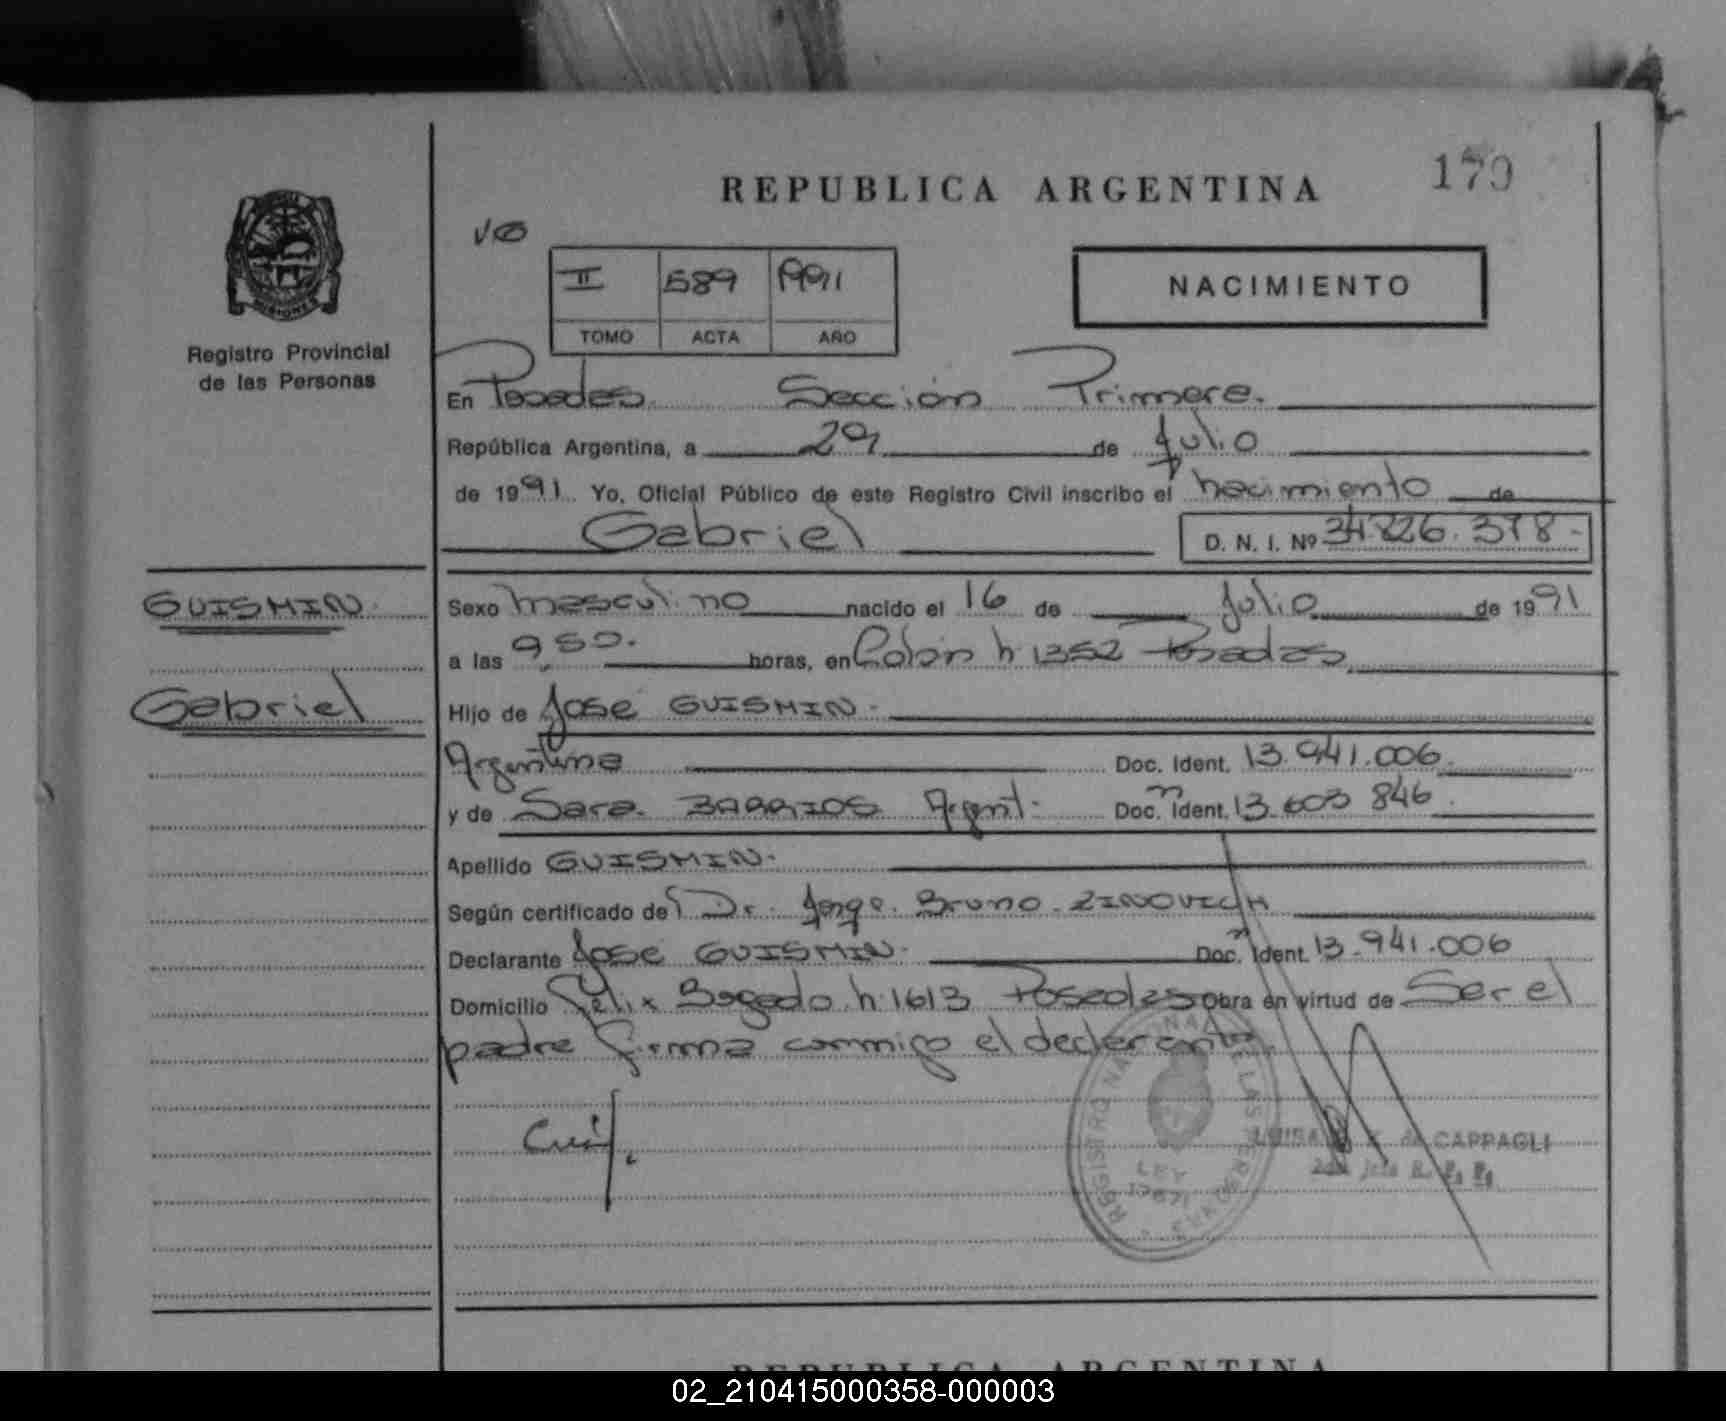 170
REPUBLICA ARGENTINA
II 589 1991
TOMO ACTA AÑO
NACIMIENTO
MISIONES
Registro Provincial
de las Personas
En Posadas. Sección Primera.
República Argentina, a 29 de Julio
de 1991. Yo, Oficial Público de este Registro Civil inscribo el nacimiento de
Gabriel D. N. I. Nº 34.826.378-
GUISMIN.
Gabriel
Sexo masculino nacido el 16 de Julio de 1991
a las 9,50. horas, en Colón n: 1352 Posadas
Hijo de José GUISMIN.
Argentina Doc. Ident. 13.941.006.
y de Sara BARRIOS Argent. Doc. Ident. 13.603 846.
Apellido GUISMIN.
Según certificado del Dr. Jorge Bruno ZINOVICH
Declarante José GUISMIN. Doc. Ident. 13.941.006
Domicilio Félix Bogado n: 1613 Posadas Obra en virtud de Ser el
padre firma conmigo el declarante.
REGISTRO NACIONAL DE LAS PERSONAS
LEY
17671
de CAPPAGLI
2da Jefa R. P. P.
REPUBLICA ARGENTINA
02_210415000358-000003